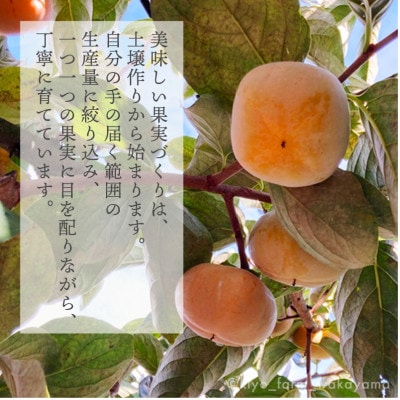 美味しい果実づくりは、
土壌作りから始まります。
自分の手の届く範囲の
生産量に絞り込み、
一つ一つの果実に目を配りながら、
丁寧に育てています。